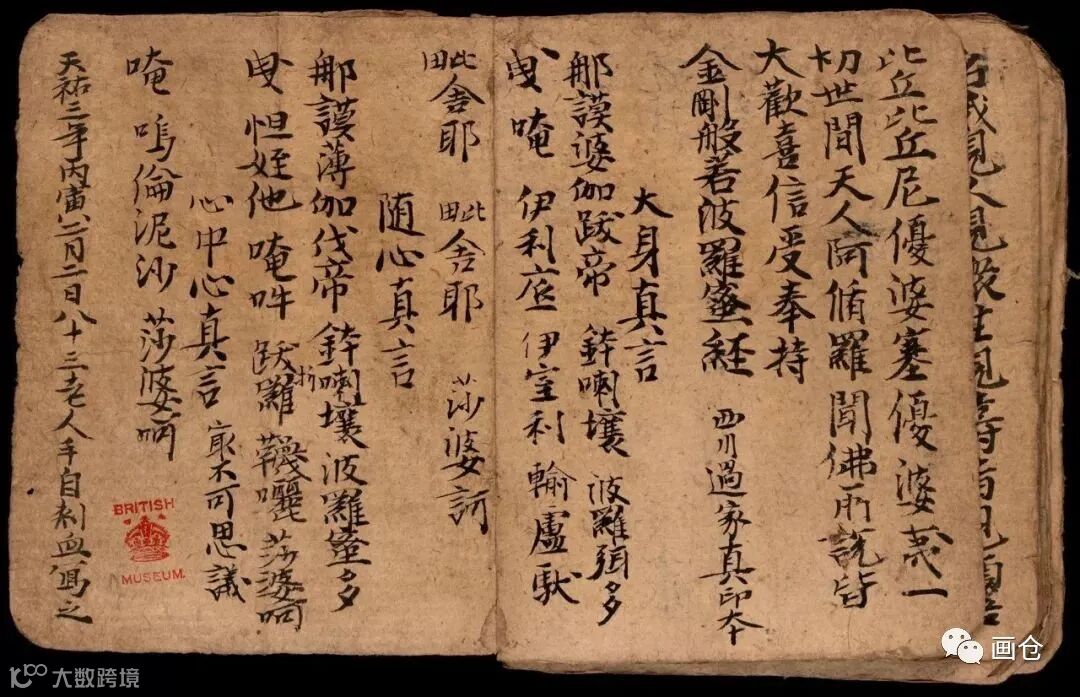 比丘比丘尼優婆塞優婆夷一
切世間天人阿脩羅聞佛所說皆
大歡喜信受奉持
金剛般若波羅蜜經 西川過家真印本
大身真言
那謨婆伽跋帝 鉢喇壤 波羅弭多
曳 唵 伊利底 伊室利 輸盧馱
毗舍耶 毗舍耶 莎婆訶
随心真言
那謨薄伽伐帝 鉢喇壤波羅蜜多
曳 怛姪他 唵 吽 跋折羅 韈囇 莎婆呵
心中心真言 冣不可思議
唵 嗚倫泥沙 莎婆呵
天祐三年丙寅二月二日八十三老人手自刺血寫之
BRITISH
MUSEUM
画仓
大数跨境